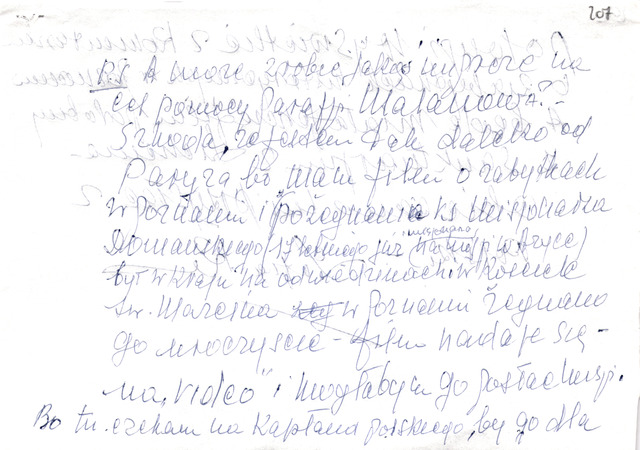 207
P.S A może zrobić jakąś imprezę na
cel pomocy parafji Matanowa? -
Szkoda, że jestem tak daleko od
Paryża bo mam film o zabytkach
w Poznaniu i pożegnaniu ks misjonarza
Domańskego (17 letniego już misjonarza na misji w Afryce)
był w kraju na odwiedzinach i w Kościele
św. Marcina w Poznaniu żegnano
go uroczyście - film nadaje się -
na „video" i mogłabym go posłać
Bo tu czekam na Kapłana polskiego, by go dla